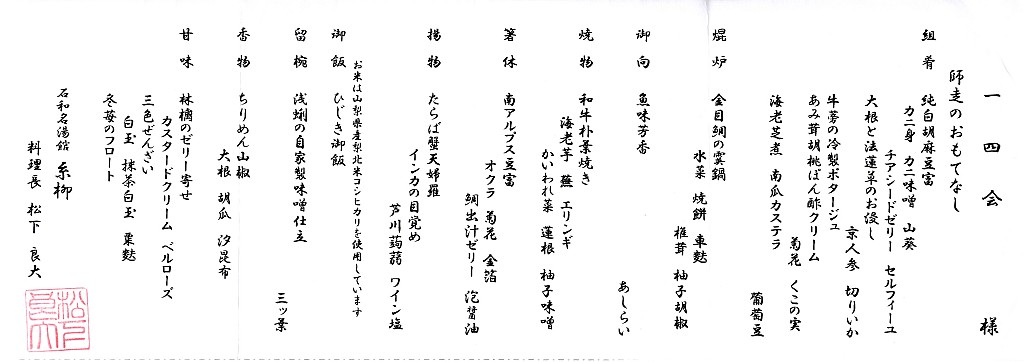 一四会 様
師走のおもてなし
組肴 純白胡麻豆富
カニ身 カニ味噌 山葵
チアシードゼリー セルフィーユ
大根と法蓮草のお浸し
京人参 切りいか
牛蒡の冷製ポタージュ
あみ茸胡桃ぽん酢クリーム
菊花 くこの実
海老芝煮 南瓜カステラ
葡萄豆
焜炉 金目鯛の雲鍋
水菜 焼餅 車麩
椎茸 柚子胡椒
御向 魚味芳香
あしらい
焼物 和牛朴葉焼き
海老芋 蕪 エリンギ
かいわれ菜 蓮根 柚子味噌
箸休 南アルプス豆富
オクラ 菊花 金箔
鯛出汁ゼリー 泡醤油
揚物 たらば蟹天婦羅
インカの目覚め
芦川蒟蒻 ワイン塩
お米は山梨県産梨北米コシヒカリを使用しています
御飯 ひじき御飯
留椀 浅蜊の自家製味噌仕立
三ッ葉
香物 ちりめん山椒
大根 胡瓜 汐昆布
甘味 林檎のゼリー寄せ
カスタードクリーム ベルローズ
三色ぜんざい
白玉 抹茶白玉 粟麩
冬苺のフロート
石和名湯館 糸柳
料理長 松下 良大